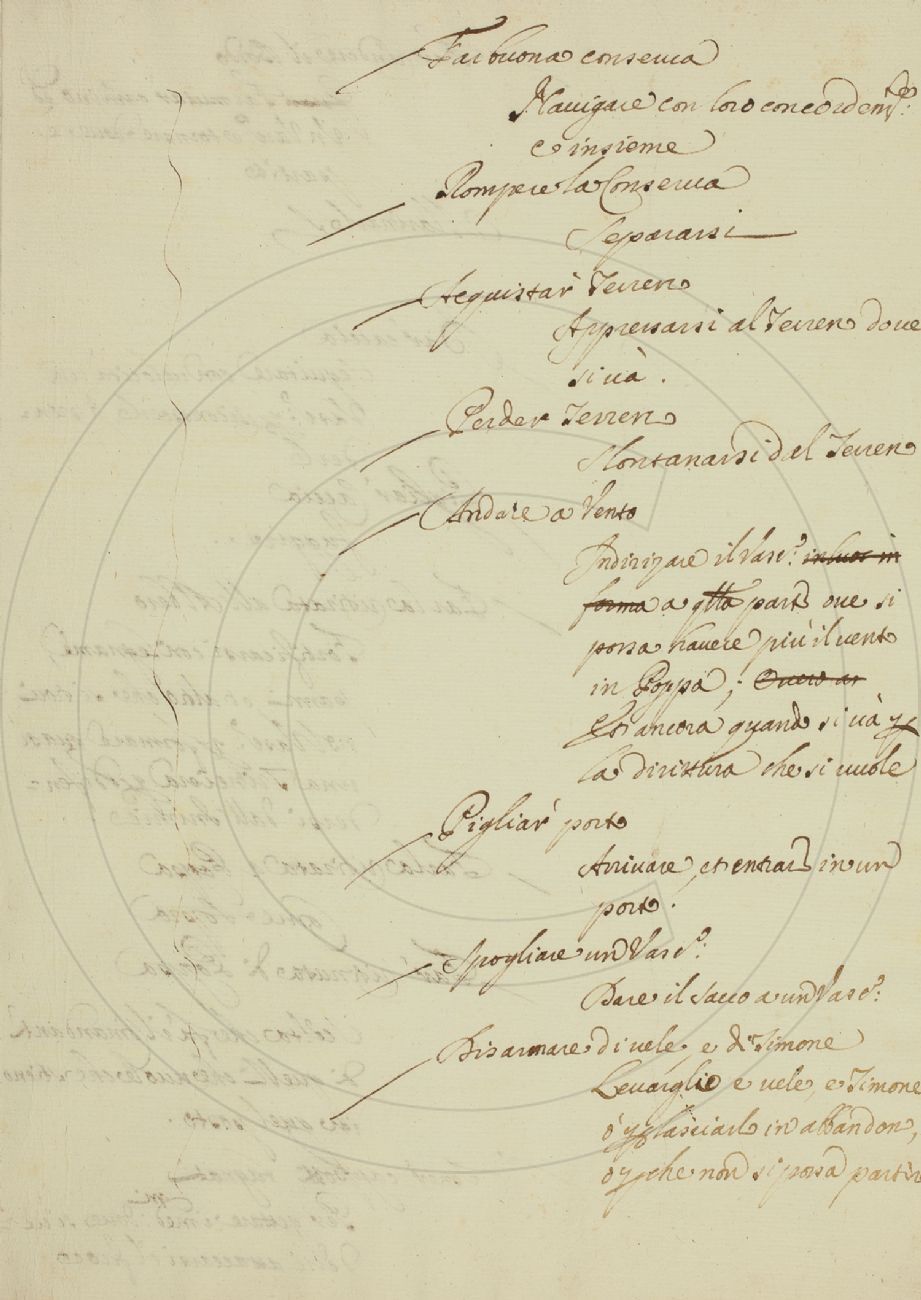 Far buona conserva
Navigare con loro concordemte:
e insieme
Rompere la Conserva
Separarsi
Acquistar' Terreno
Appressarsi al Terreno dove
si và .
Perder Terreno
Slontanarsi dal Terreno
Andare a Vento
Indirizare il Vasc.o: in luor in
forma a qlla parte ove si
possa havere più il vento
in Poppa ; Overo ar
Et ancora quando si và p
la dirittura che si vuole
Pigliar' porto
Arrivare, et entrare in un
porto.
Spogliare un Vasc.o:
Dare il sacco a un Vasc.o:
Disarmare di vele, e di Timone
Levargli e vele, e Timone
ò p lasciarlo in abbandono,
ò p che non si possa partire